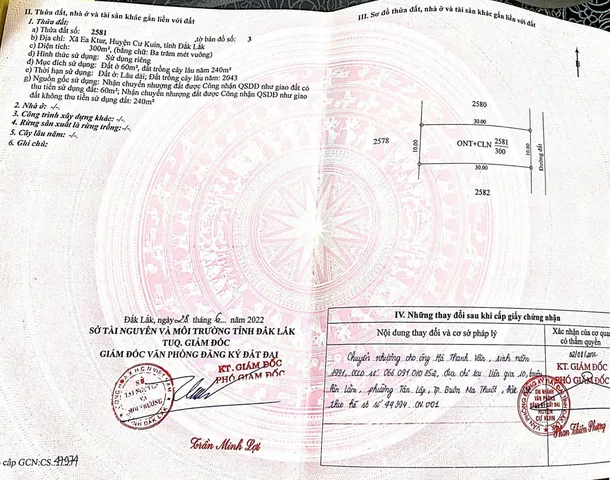 II. Thửa đất, nhà ở và tài sản khác gắn liền với đất
1. Thửa đất:
a) Thửa đất số: 2581 tờ bản đồ số: 3
b) Địa chỉ: Xã Ea Ktur, Huyện Cư Kuin, tỉnh Đắk Lắk
c) Diện tích: 300m², (bằng chữ: Ba trăm mét vuông)
d) Hình thức sử dụng: Sử dụng riêng
đ) Mục đích sử dụng: Đất ở 60m², đất trồng cây lâu năm 240m²
e) Thời hạn sử dụng: Đất ở: Lâu dài; Đất trồng cây lâu năm: 2043
g) Nguồn gốc sử dụng: Nhận chuyển nhượng đất được Công nhận QSDĐ như giao đất có
thu tiền sử dụng đất: 60m²; Nhận chuyển nhượng đất được Công nhận QSDĐ như giao
đất không thu tiền sử dụng đất: 240m²
2. Nhà ở: -/-
3. Công trình xây dựng khác: -/-
4. Rừng sản xuất là rừng trồng: -/-
5. Cây lâu năm: -/-
6. Ghi chú:
Đắk Lắk, ngày 28 tháng 6 năm 2022
SỞ TÀI NGUYÊN VÀ MÔI TRƯỜNG TỈNH ĐẮK LẮK
TUQ. GIÁM ĐỐC
GIÁM ĐỐC VĂN PHÒNG ĐĂNG KÝ ĐẤT ĐAI
KT. GIÁM ĐỐC
PHÓ GIÁM ĐỐC
SỞ
TÀI NGUYÊN
VÀ
MÔI TRƯỜNG
Trần Minh Lợi
cấp GCN: CS
III. Sơ đồ thửa đất, nhà ở và tài sản khác gắn liền với đất
B
2580
30.00
2578
10.00
ONT+CLN 2581
300
10.00
Đường đất
30.00
2582
IV. Những thay đổi sau khi cấp giấy chứng nhận
Nội dung thay đổi và cơ sở pháp lý
Xác nhận của cơ quan
có thẩm quyền
Chuyển nhượng cho ông Hà Thanh Vân, sinh năm
1991, CCCD số: 066 091 010 852, địa chỉ tại liên gia 10,
phường Tân Lập, Tp. Buôn Ma Thuột,
theo hồ sơ số
KT. GIÁM ĐỐC
PHÓ GIÁM ĐỐC
CHI NHÁNH
VĂN PHÒNG
ĐĂNG KÝ ĐẤT ĐAI
HUYỆN
CƯ KUIN
Phan Thiên Phương